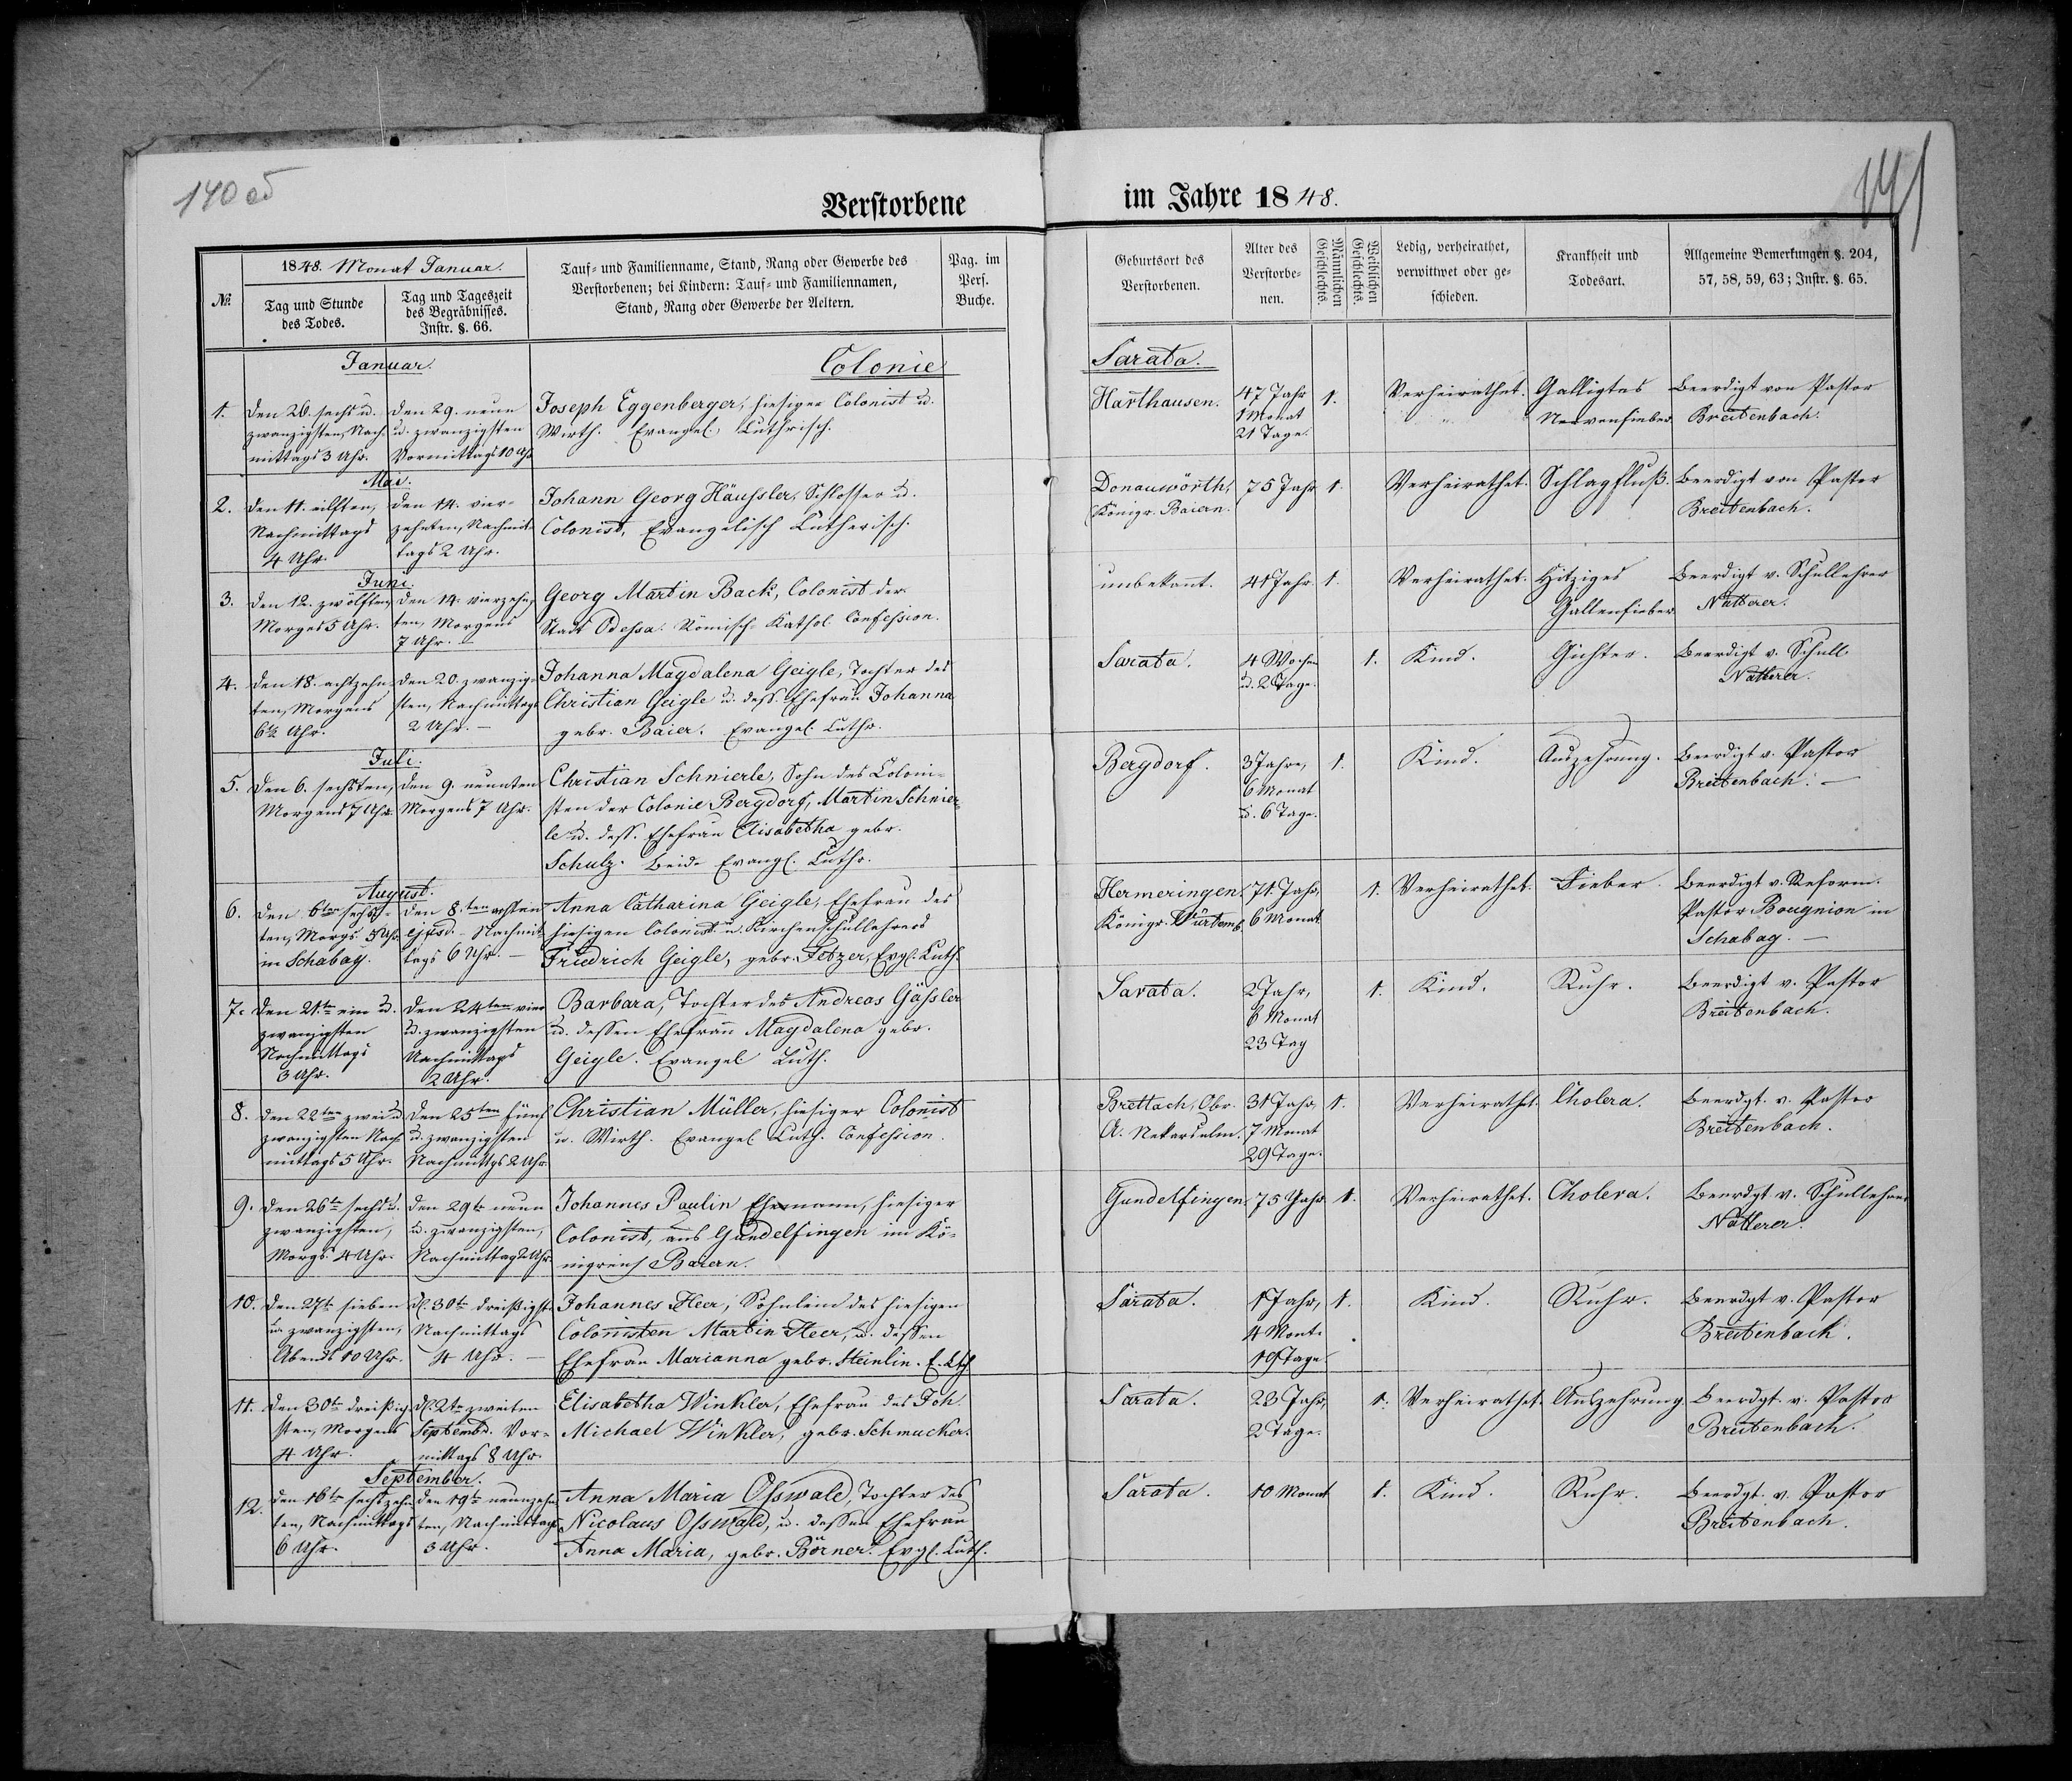 140 об
141
Verstorbene im Jahre 1848.
№.
1848. Monat Januar.
Tag und Stunde
des Todes.
Tag und Tageszeit
des Begräbnisses.
Instr. §. 66.
Tauf- und Familienname, Stand, Rang oder Gewerbe des
Verstorbenen; bei Kindern: Tauf- und Familiennamen,
Stand, Rang oder Gewerbe der Aeltern.
Pag. im
Pers.
Buche.
Geburtsort des
Verstorbenen.
Alter des
Verstorbe-
nen.
Männlichen
Geschlechts.
Weiblichen
Geschlechts.
Ledig, verheirathet,
verwittwet oder ge-
schieden.
Krankheit und
Todesart.
Allgemeine Bemerkungen §. 204,
57, 58, 59, 63; Instr. §. 65.
Januar.
Colonie Sarata.
1.
Den 26. sechs u.
zwanzigsten, Nach-
mittags 3 Uhr.
Den 29. neun
u. zwanzigsten
Vormittags 10 Uhr
Joseph Eggenberger, hiesiger Colonist u.
Wirth. Evangel. Luthrisch.
Harthausen.
47 Jahr
1 Monat
21 Tage.
1.
Verheirathet.
Galligtes
Nervenfieber
Beerdigt von Pastor
Breitenbach.
Mai.
2.
Den 11. eilften,
Nachmittags
4 Uhr.
Den 14. vier-
zehnten, Nachmit-
tags 2 Uhr.
Johann Georg Häussler, Schlosser u.
Colonist, Evangelisch Lutherisch.
Donauwörth,
Königr. Baiern.
75 Jahr
1.
Verheirathet.
Schlagfluß.
Beerdigt von Pastor
Breitenbach.
Juni.
3.
Den 12. zwölften,
Morges 5 Uhr.
Den 14. vierzehn-
ten, Morgens
7 Uhr. –
Georg Martin Back, Colonist der
Stadt Odessa. Römisch-Kathol. Confession.
unbekant.
41 Jahr
1.
Verheirathet.
Hitziges
Gallenfieber
Beerdigt v. Schullehrer
Natterer.
4.
Den 18. achtzehn-
ten, Morgens
6½ Uhr.
Den 20. zwanzig-
sten, Nachmittags
2 Uhr. –
Johanna Magdalena Geigle, Tochter des
Christian Geigle u. dess. Ehefrau Johanna
gebr. Baier. Evangel. Luthr.
Sarata.
4 Wochen
u. 2 Tage.
1.
Kind.
Gichter.
Beerdigt v. Schull
Natterer.
Juli.
5.
Den 6. sechsten,
Morgens 7 Uhr.
Den 9. neunten
Morgens 7 Uhr.
Christian Schnierle, Sohn des Coloni-
sten der Colonie Bergdorf, Martin Schnier-
le u. dess. Ehefrau Elisabetha gebr.
Schulz. Beide Evangl. Luthr.
Bergdorf.
3 Jahre,
6 Monat
u. 6 Tage.
1.
Kind.
Auszehrung.
Beerdigt v. Pastor
Breitenbach. –
August.
6.
Den 6ten sechs-
ten, Morgs. 5 Uhr
in Schabag.
Den 8.ten achten
Nachmit-
tags 6 Uhr. –
Anna Catharina Geigle, Ehefrau des
hiesigen Colonist. u. Kirchenschullehrers
Friedrich Geigle, gebr. Fetzer, Evgl. Luth.
Hermeringen.
Königr. Würtemb.
71. Jahr,
6 Monat
1.
Verheirathet.
Fieber.
Beerdigt v. Reform.
Pastor Bougnion in
Schabag. –
7.
Den 21.tn ein u.
zwanzigsten
Nachmittags
3 Uhr.
Den 24ten vier
u. zwanzigsten
Nachmittags
2 Uhr.
Barbara, Tochter des Andreas Gässler
u. dessen Ehefrau Magdalena gebr.
Geigle. Evangel. Luth.
Sarata.
2 Jahr,
6 Monat
23 Tag
1.
Kind.
Ruhr.
Beerdigt v. Pastor
Breitenbach.
8.
Den 22ten zwei u.
zwanzigsten Nach-
mittags 5 Uhr.
Den 25ten fünf
u. zwanzigsten
Nachmittgs 2 Uhr.
Christian Müller, hiesiger Colonist
u. Wirth. Evangel. Luth. Confession.
Brettach, Obr.
A. Nekarsulm.
31 Jahr,
7 Monat
29 Tage.
1.
Verheirathet.
Cholera.
Beerdgt. v. Pastor
Breitenbach.
9.
Den 26tn sechs u.
zwanzigsten,
Morgs. 4 Uhr.
Den 29tn neun
u. zwanzigsten,
Nachmittag 2 Uhr.
Johannes Paulin Ehemann, hiesiger
Colonist, aus Gundelfingen im Kö-
nigreich Baiern.
Gundelfingen.
75 Jahr.
1.
Verheirathet.
Cholera.
Beerdgt v. Schullehrer
Natterer.
10.
Den 27tn sieben
u. zwanzigsten,
Abends 10 Uhr.
d. 30tn dreißigst.
Nachmittags
4 Uhr. –
Johannes Heer, Söhnlein des hiesigen
Colonisten Martin Heer, u. dessen
Ehefrau Marianna gebr. Steinlin.
Sarata.
1 Jahr,
4 Mont.
19 Tage.
1.
Kind.
Ruhr.
Beerdgt v. Pastor
Breitenbach.
11.
Den 30tn dreißig-
sten, Morgens
4 Uhr.
d. 2tn zweiten
Septembr. Vor-
mittags 8 Uhr.
Elisabetha Winkler, Ehefrau des Joh.
Michael Winkler, gebr. Schmucker.
Sarata.
23 Jahr,
2 Tage.
1.
Verheirathet.
Auszehrung.
Beerdgt v. Pastor
Breitenbach.
September.
12.
Den 16tn sechszehn-
ten, Nachmittags
6 Uhr.
Den 19tn neunzehn-
ten, Nachmittags
3 Uhr.
Anna Maria Osswald, Tochter des
Nicolaus Osswald, u. dessen Ehefrau
Anna Maria, gebr. Börner. Evgl. Luth.
Sarata.
10 Monat
1.
Kind.
Ruhr.
Beerdgt. v. Pastor
Breitenbach.